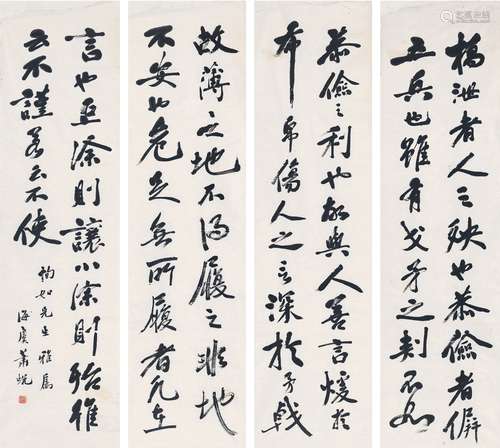 橋泄者人之殃也恭儉者偋
五兵也雖有戈矛之刺不如
恭儉之利也故與人善言煖於
布帛傷人之言深於矛戟
故薄之地不得履之非地
不安也危足無所履者凡在
言也巨涂則讓小涂則殆雖
云不謹若云不使
如先生雅屬
海虞蕭蜕